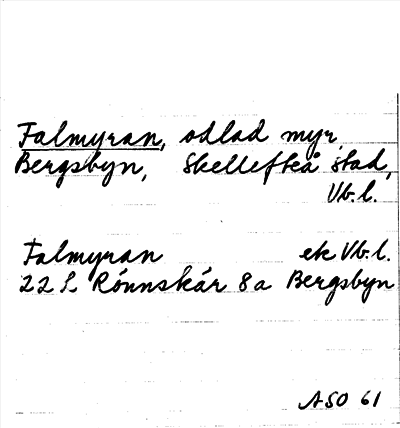 Falmyran, odlad myr
Bergsbyn, Skellefteå stad,
Vb.l.
Falmyran ek Vb.l.
22 L Rönnskär 8a Bergsbyn
ASO 61